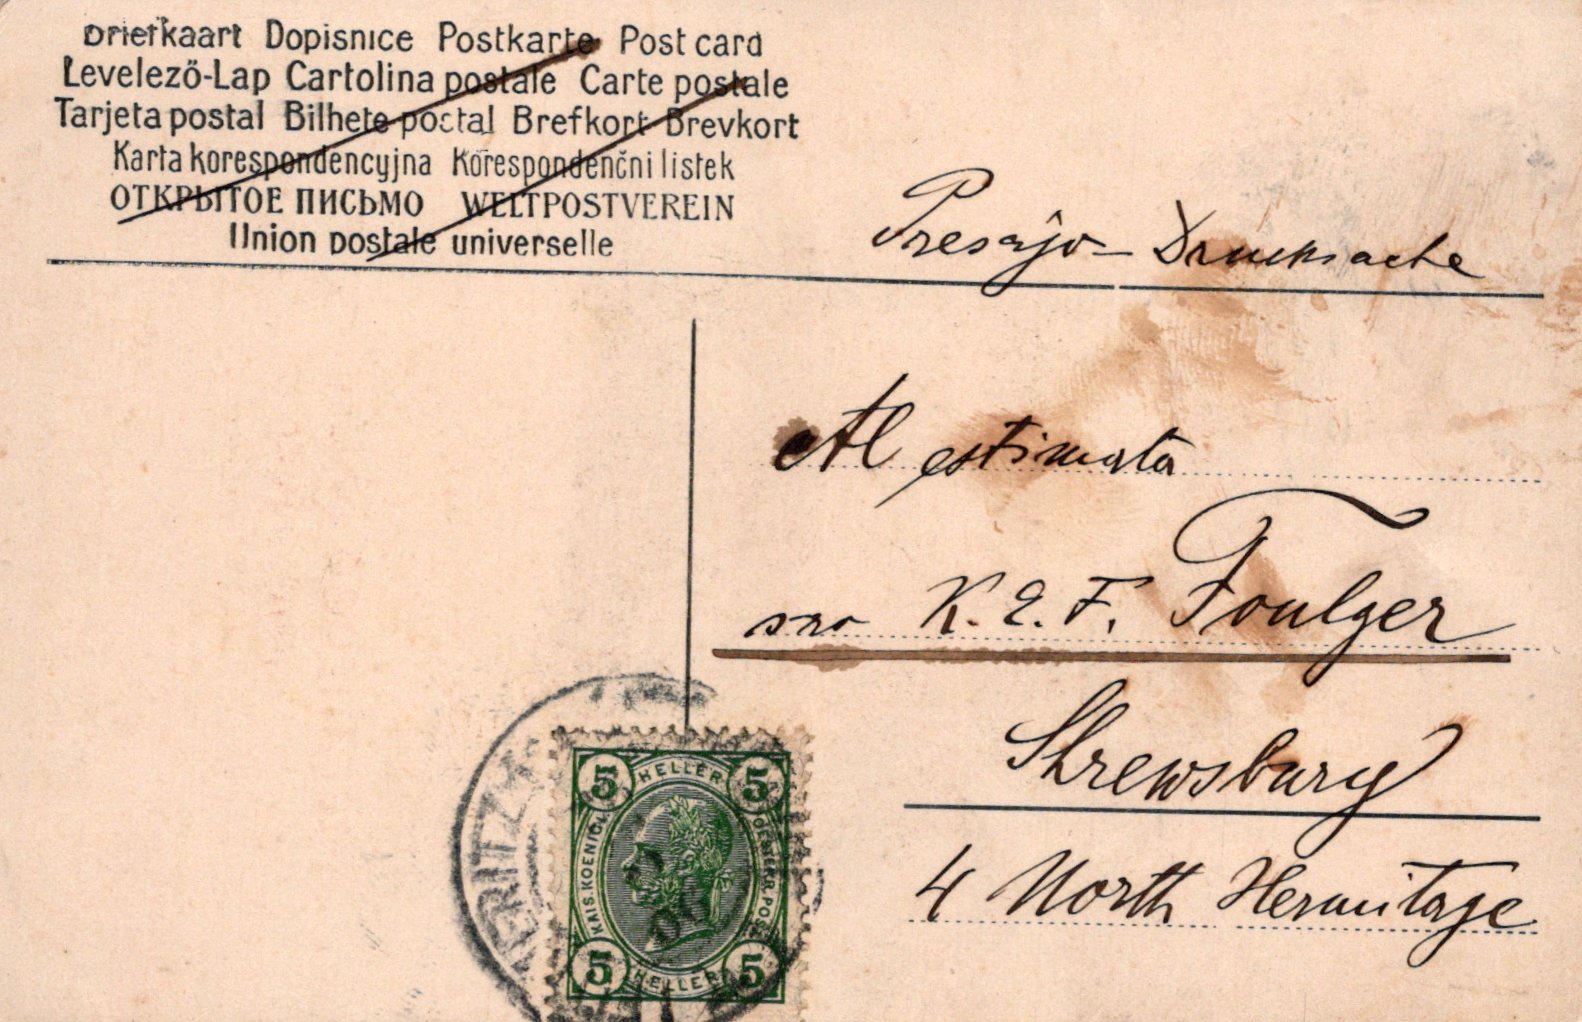 Briefkaart Dopisnice Postkarte Post card
Levelező-Lap Cartolina postale Carte postale
Tarjeta postal Bilhete postal Brefkort Brevkort
Karta korespondencyjna Korespondenčni listek
ОТКРЫТОЕ ПИСЬМО WELTPOSTVEREIN
Union postale universelle
Presaĵo – Drucksache
Al estimata
sro K. E. F. Foulger
Shrewsbury
4 North Hermitage
5 HELLER 5
KAIS. KOENIGL. OESTERR. POST
5 HELLER 5